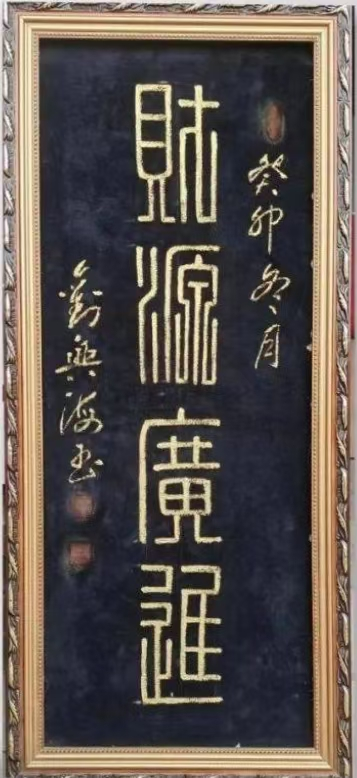 癸卯冬月
財源廣進
劉興海書